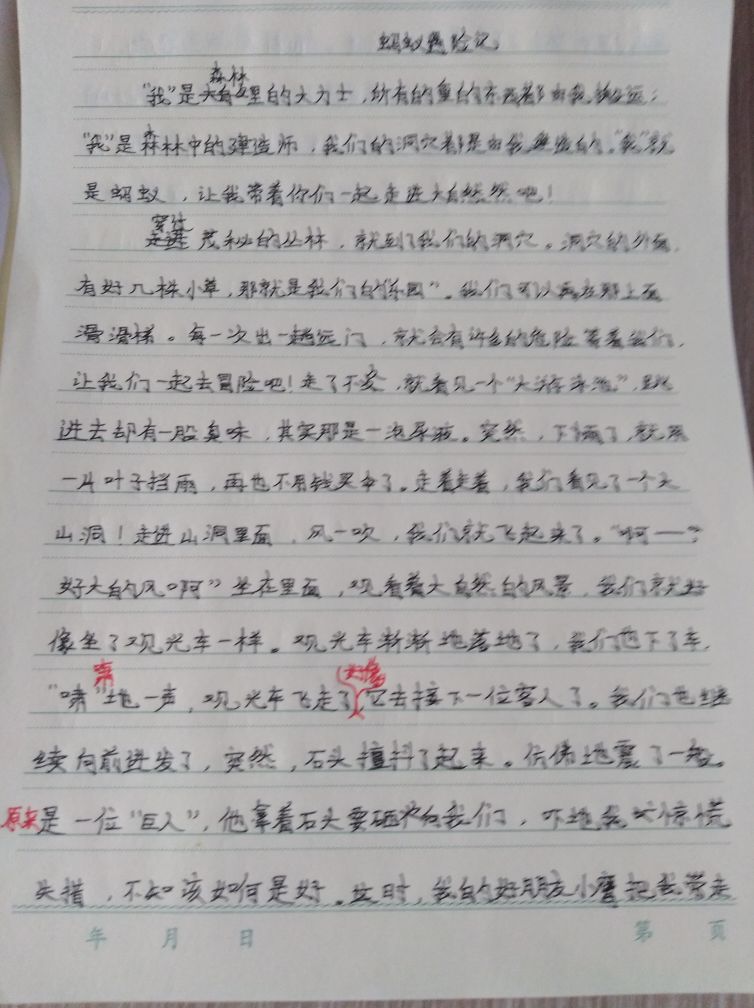 蚂蚁遇险记
森林
"我"是大自里的大力士，所有的重的东西都由我搬运；
"我"是森林中的建造师，我们的洞穴都是由我建造的。"我"就
是蚂蚁，让我带着你们一起走进大自然然吧！
穿过
走进茂秘的丛林，就到了我们的洞穴。洞穴的外面，
有好几株小草，那就是我们的"乐园"。我们可以在那上面
滑滑梯。每一次出一趟远门，就会有许多的危险等着我们，
让我们一起去冒险吧！走了不久，就看见一个"大游泳池"，跳
进去却有一股臭味，其实那是一泡尿液。突然，下雨了，就用
一片叶子挡雨，再也不用钱买伞了。走着走着，我们看见了一个大
山洞！走进山洞里面，风一吹，我们就飞起来了。"啊——？
好大的风啊"坐在里面，观看着大自然的风景，我们就好
像坐了观光车一样。观光车渐渐地落地了，我们也下了车，
啸
"啸"地一声，观光车飞走了它去接下一位客人了。我们也继
续向前进发了，突然，石头撞抖了起来。仿佛地震了一般。
原来是一位"巨人"，他拿着石头要砸向我们，吓地我忙惊慌
失措，不知该如何是好。这时，我的好朋友小鹰把我带走
年 月 日
第 页